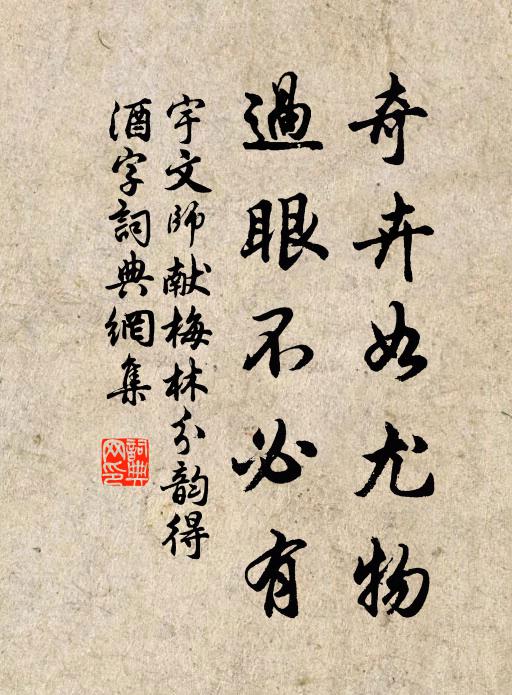 奇卉如尤物
過眼不必有
宇文師献梅林分韵得
酒字詞典網集
詞典網印